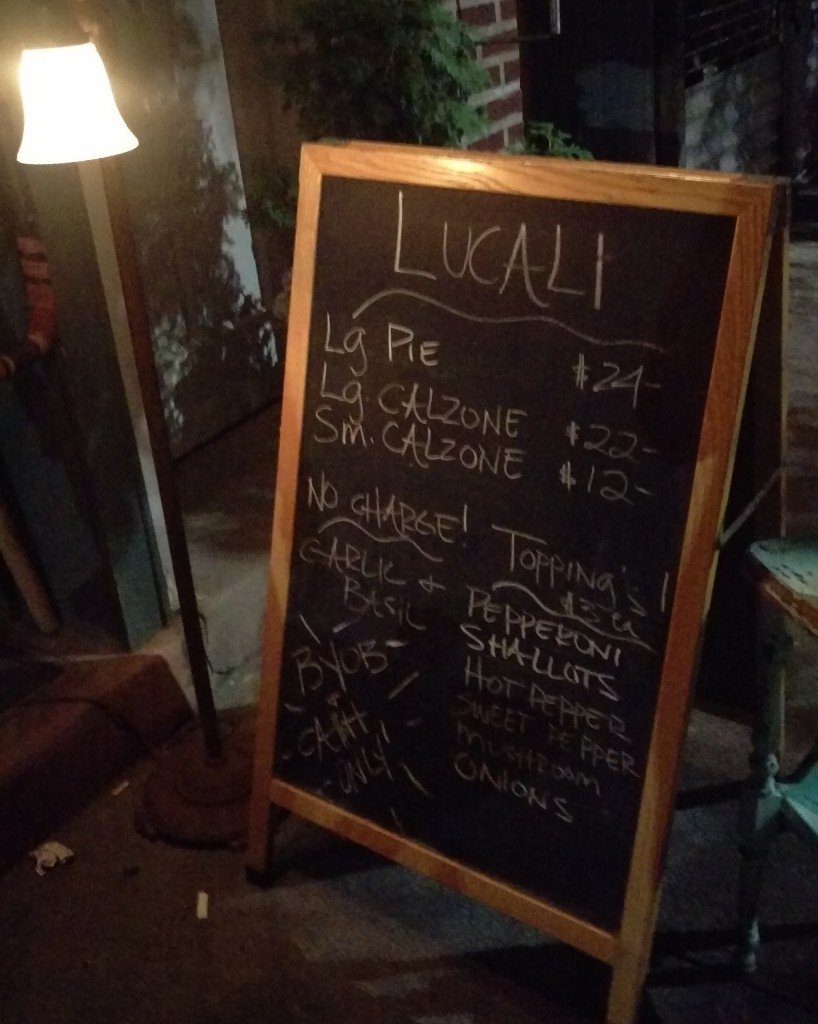 LUCALI
Lg PIE $24-
Lg. CALZONE $22-
Sm. CALZONE $12-
NO CHARGE!
GARLIC +
BASIL
BYOB
+
CASH
ONLY
TOPPING'S!
$3 ea
PEPPERONI
SHALLOTS
HOT PEPPER
SWEET PEPPER
MUSHROOM
ONIONS